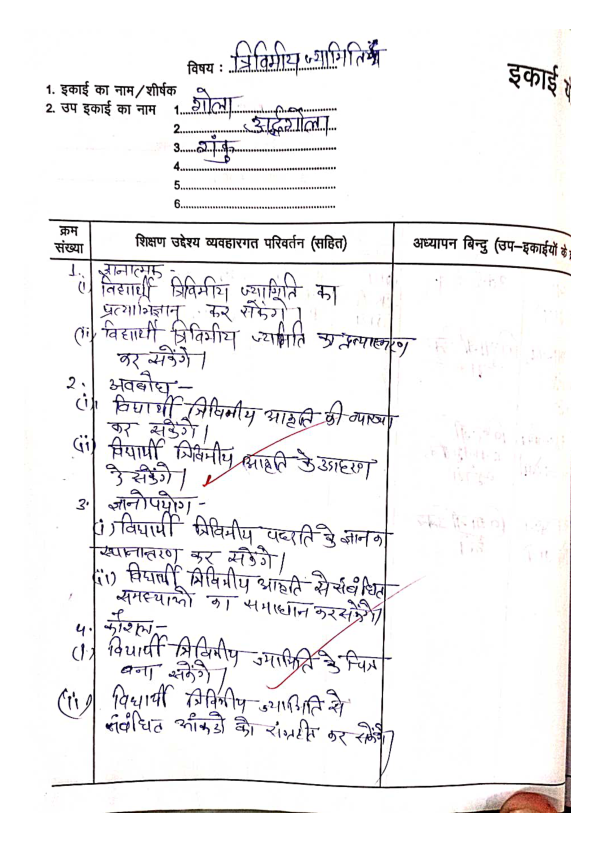 विषय : त्रिविमीय ज्यामितिय
इकाई
1. इकाई का नाम/शीर्षक
2. उप इकाई का नाम 1. गोला
2. अर्द्धगोला
3. शंकु
4.
5.
6.
क्रम संख्या
शिक्षण उद्देश्य व्यवहारगत परिवर्तन (सहित)
अध्यापन बिन्दु (उप–इकाईयों के
1. ज्ञानात्मक -
(i) विद्यार्थी त्रिविमीय ज्यामिति का
प्रत्याभिज्ञान कर सकेंगे।
(ii) विद्यार्थी त्रिविमीय ज्यामिति का प्रत्यास्मरण
कर सकेंगे।
2. अवबोध –
(i) विद्यार्थी त्रिविमीय आकृति की व्याख्या
कर सकेंगे।
(ii) विद्यार्थी त्रिविमीय आकृति के उदाहरण
दे सकेंगे।
3. ज्ञानोपयोग -
(i) विद्यार्थी त्रिविमीय के ज्ञान का
स्थानान्तरण कर सकेंगे।
(ii) विद्यार्थी त्रिविमीय आकृति से संबंधित
समस्याओं का समाधान कर सकेंगे।
4. कौशल–
(i) विद्यार्थी त्रिविमीय ज्यामिति के चित्र
बना सकेंगे।
(ii) विद्यार्थी त्रिविमीय ज्यामिति से
संबंधित आंकडो को संग्रहीत कर सकेंगे।